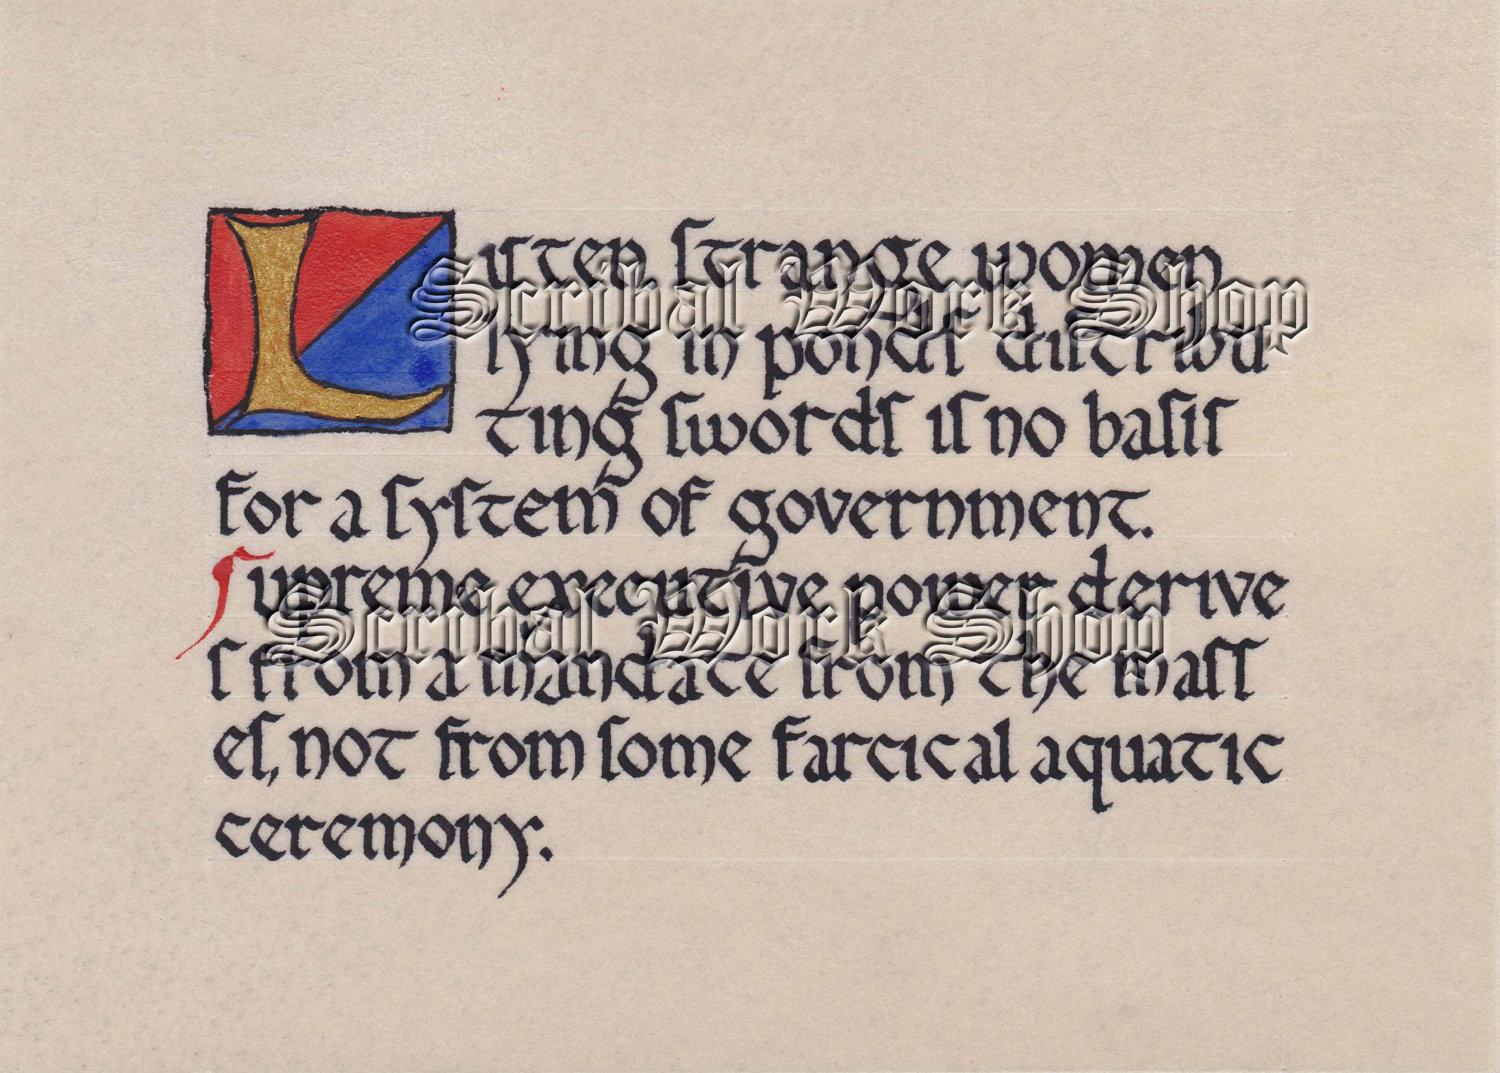 Listen strange women
Scribal Work Shop
lying in ponds distribu
ting swords is no basis
for a system of government.
Supreme executive power derive
Scribal Work Shop
s from a mandate from the mass
es, not from some farcical aquatic
ceremony.